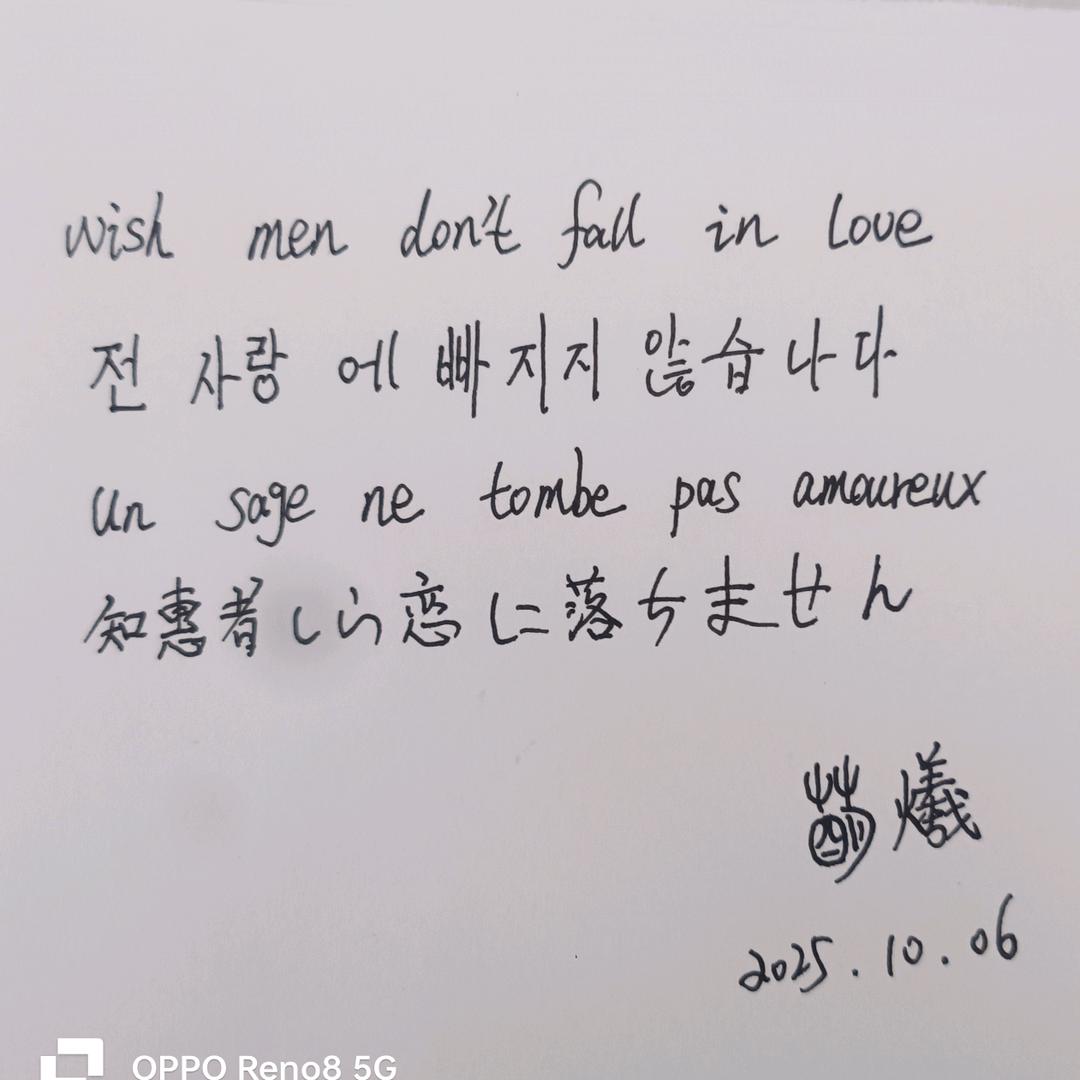 wish men don't fall in love
전 사랑 에 빠지지 않습나다
un sage ne tombe pas amoureux
知惠者しら恋に落ちません
曦
2025.10.06
OPPO Reno8 5G